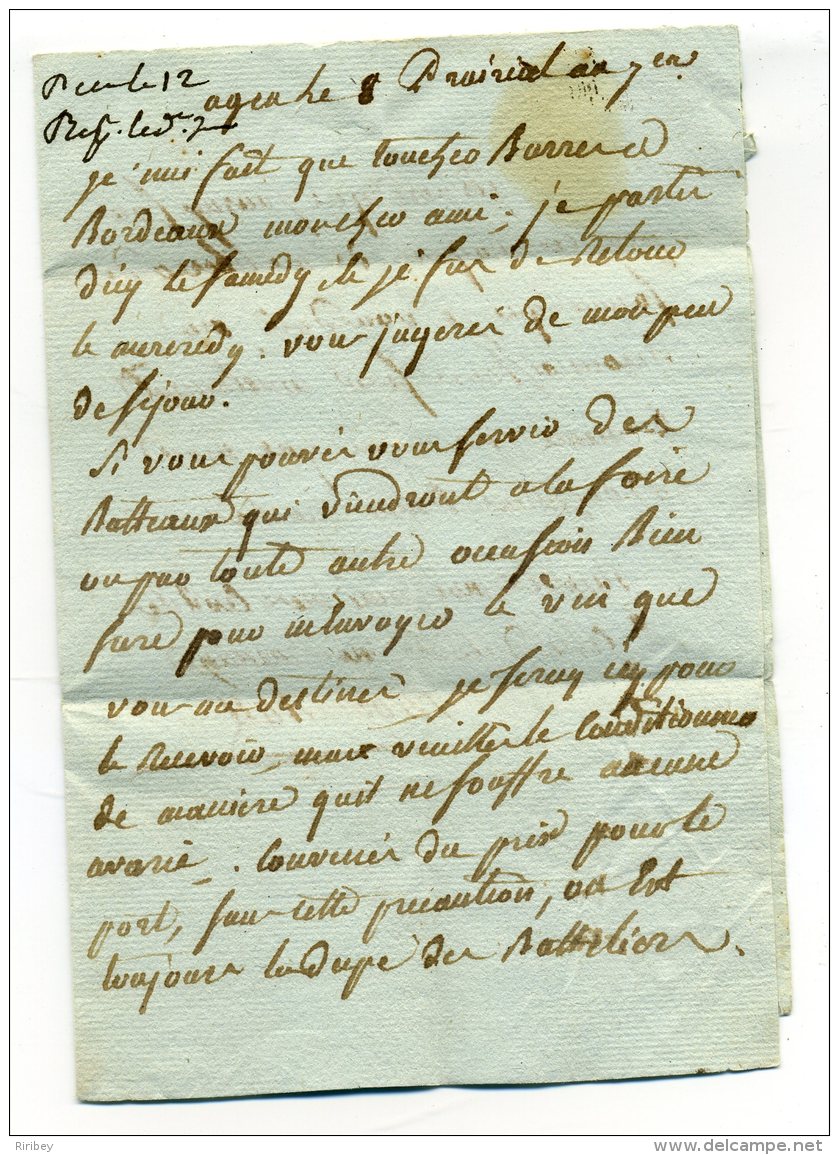 Reçu le 12
Resp. le d.
agen le 8 Prairial an 7em
je n'ais fait que toucher Barre a
Bordeaux mon cher ami. je partis
d'icy le samedy, & je fus de Retour
le mercredy. vous jugeres de mon peu
de sejour.
Si vous pouvés vous servir des
Batteaux qui viendront a la foire
ou par toute autre occasion Bien
sure pour m'envoyer le vin que
vous me destinés je seray icy pour
le Recevoir, mais veuilles le Conditionner
de maniere quil ne souffre aucune
avarie. Convenés du prix pour le
port, sans cette precaution, on Est
toujours la dupe des Batteliers.
Riribey